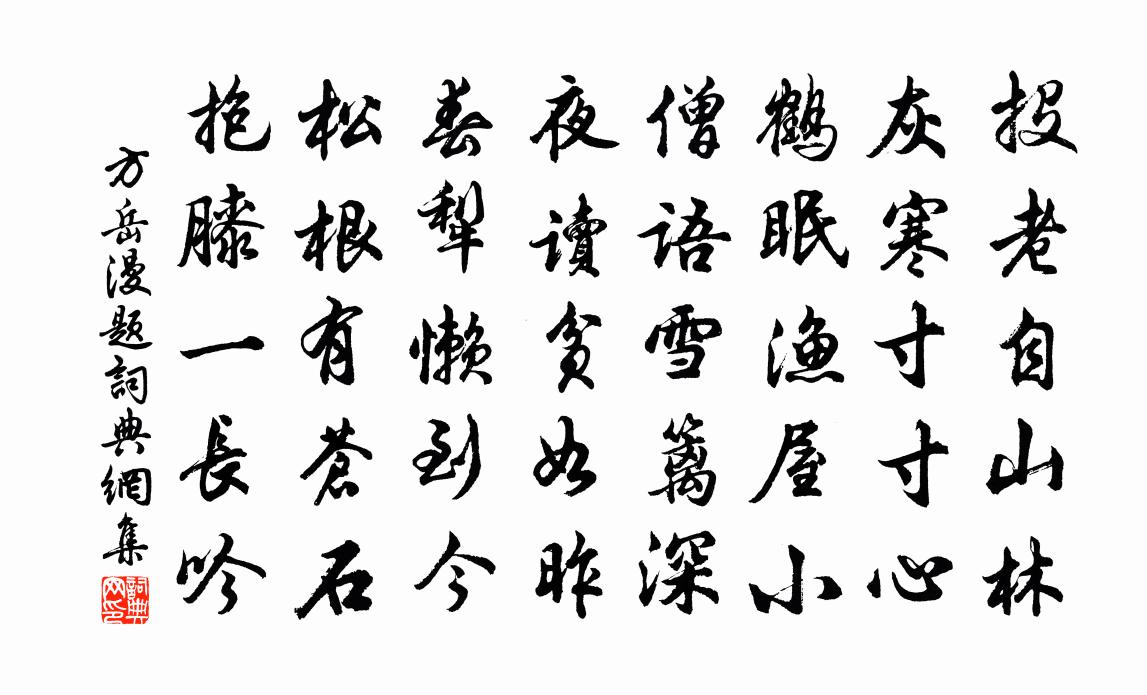 投老自山林
灰寒寸寸心
鶴眠漁屋小
僧語雪籬深
夜讀貧如昨
春犁懶到今
松根有蒼石
抱膝一長吟
方岳漫题詞典網集
詞典
网印